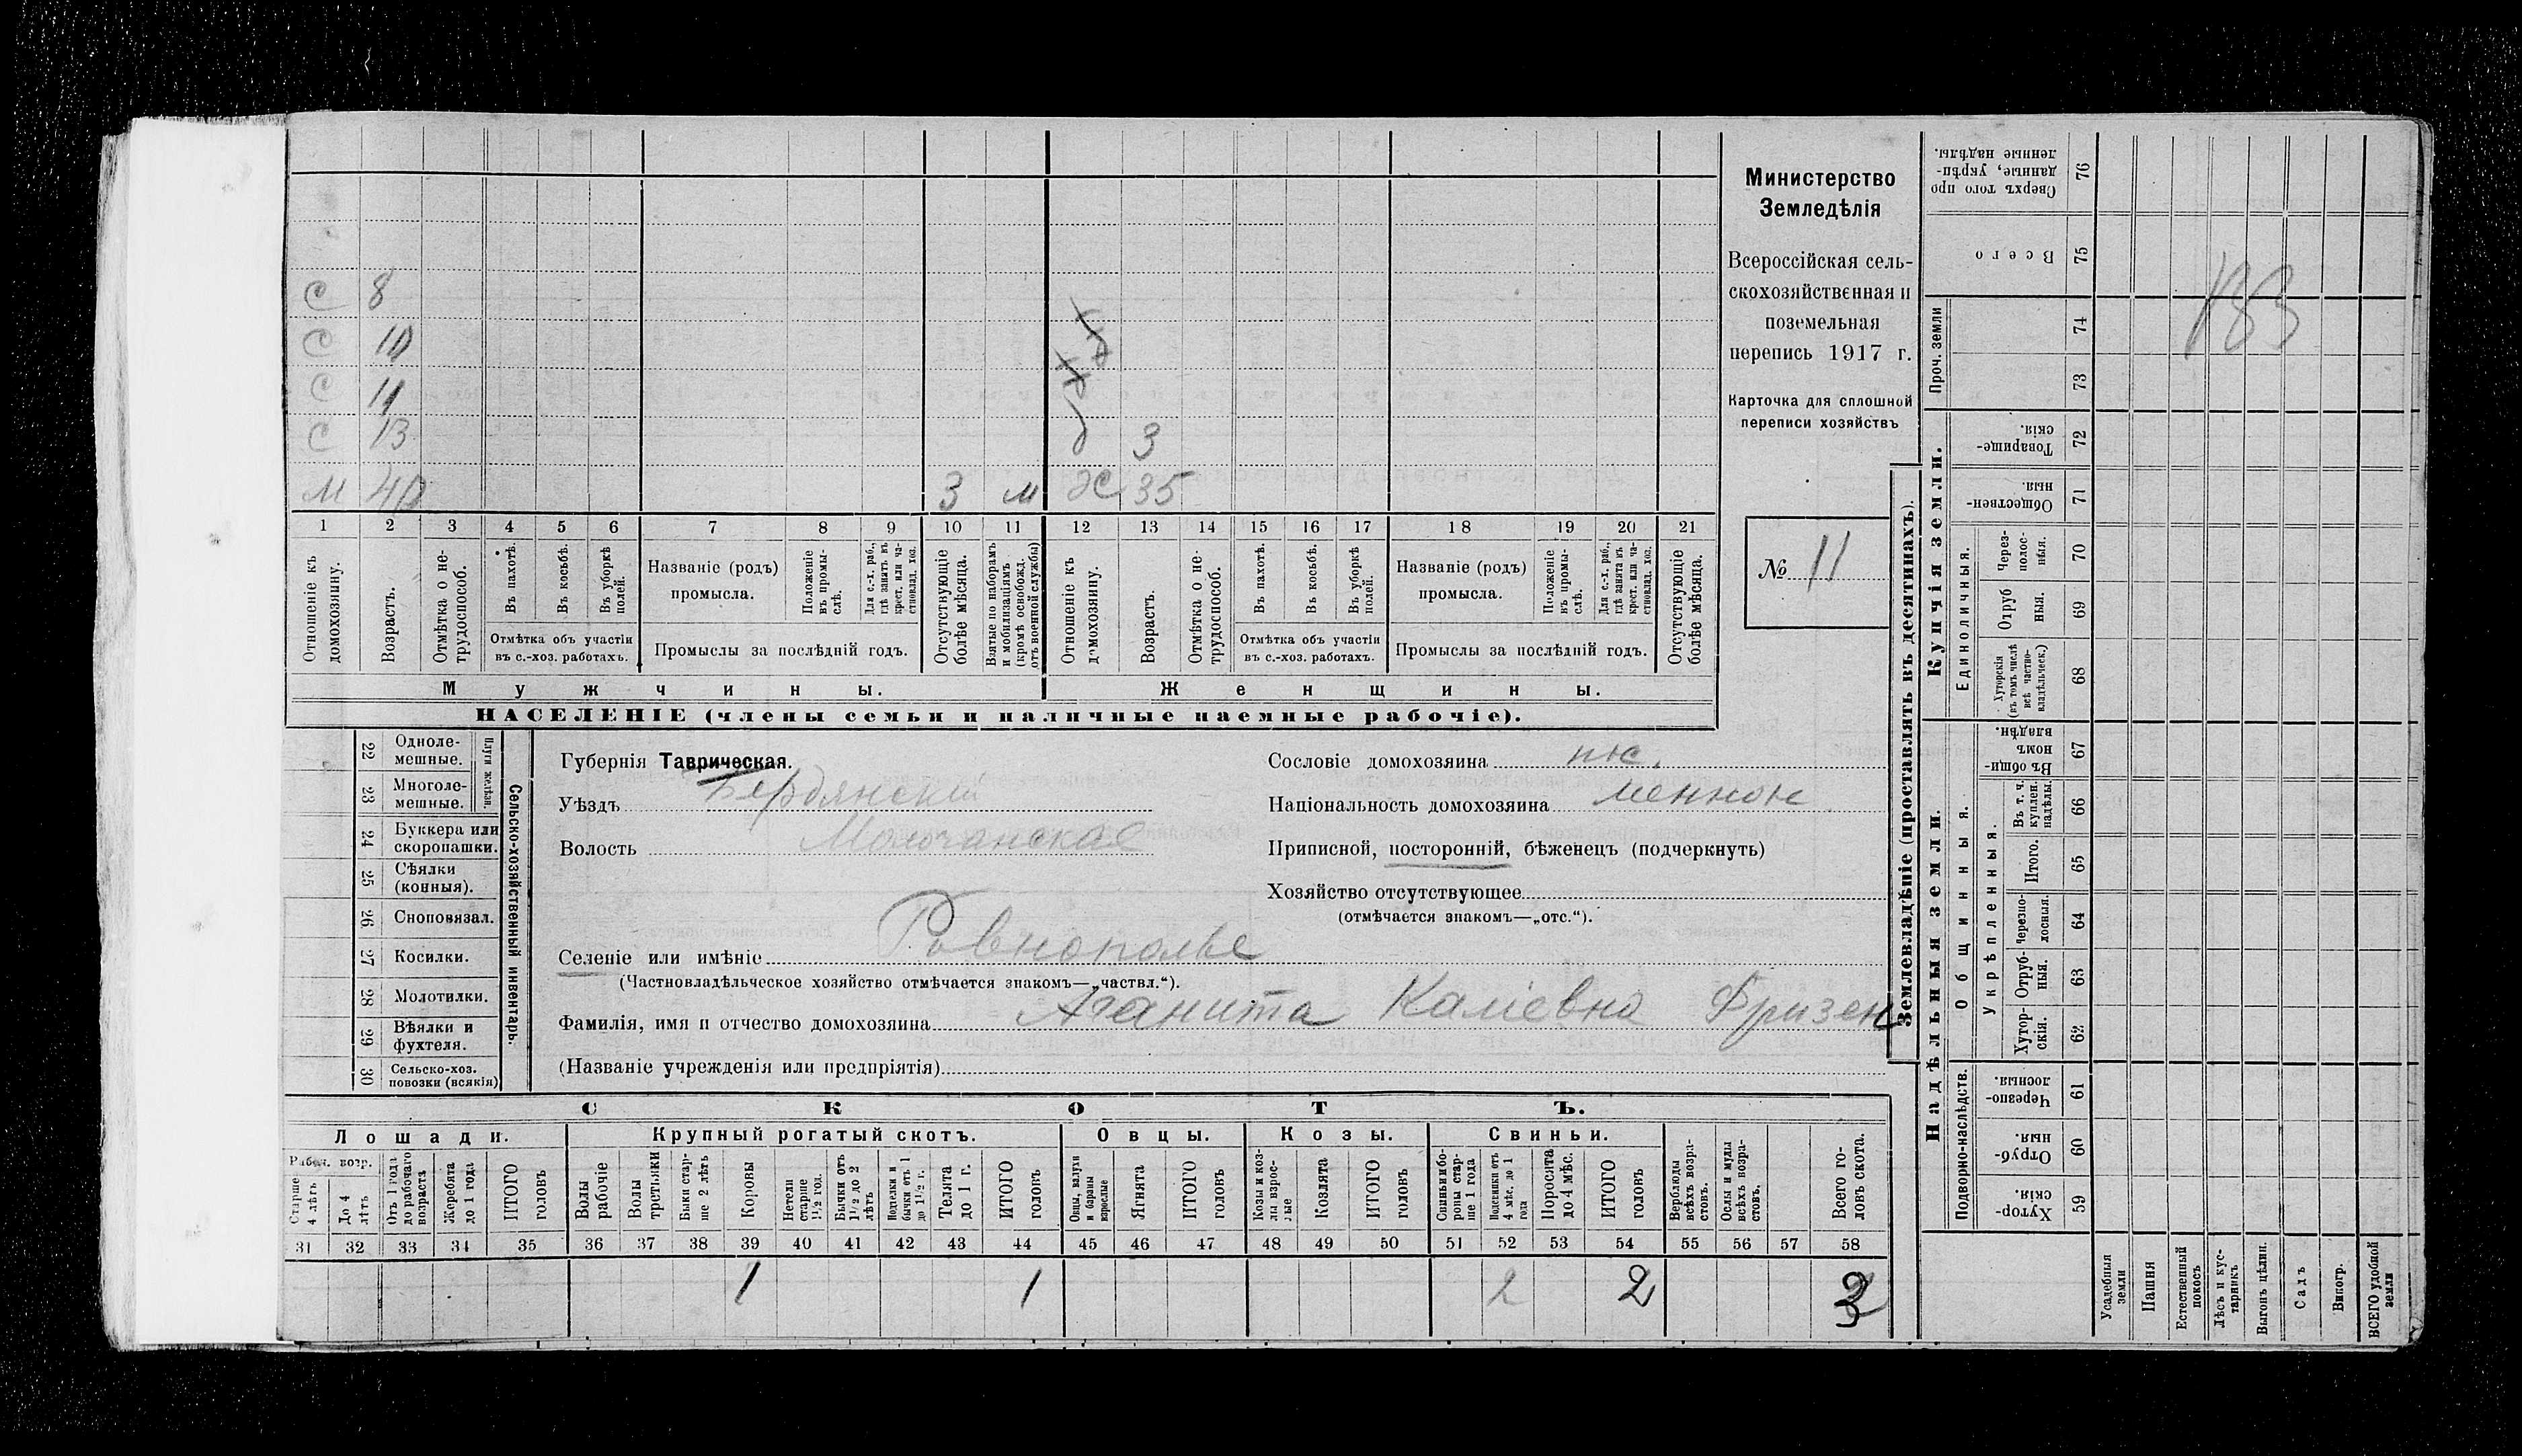 С 8
С 10
С 11
С 13 3
М 40 3 м Ж 35
1 2 3 4 5 6 7 8 9 10 11 12 13 14 15 16 17 18 19 20 21
Отношеніе къ домохозяину.
Возрастъ.
Отмѣтка о не-трудоспособ.
Въ пахотѣ.
Въ косьбѣ.
Въ уборкѣ полей.
Отмѣтка объ участіи
въ с.-хоз. работахъ.
Названіе (родъ)
промысла.
Положеніе въ промы-слѣ.
Для с.-х. раб., гдѣ занятъ въ крест. или ча-стновлад. хоз.
Промыслы за послѣдній годъ.
Отсутствующіе болѣе мѣсяца.
Взятые по наборамъ и мобилизаціямъ (кромѣ освобожд. отъ военной службы)
Отношеніе къ домохозяину.
Возрастъ.
Отмѣтка о не-трудоспособ.
Въ пахотѣ.
Въ косьбѣ.
Въ уборкѣ полей.
Отмѣтка объ участіи
въ с.-хоз. работахъ.
Названіе (родъ)
промысла.
Положеніе въ промы-слѣ.
Для с.-х. раб., гдѣ занята въ крест. или ча-стновлад. хоз.
Промыслы за послѣдній годъ.
Отсутствующіе болѣе мѣсяца.
Мужчины. Женщины.
НАСЕЛЕНІЕ (члены семьи и наличные наемные рабочіе).
Министерство
Земледѣлія
Всероссійская сель-
скохозяйственная и
поземельная
перепись 1917 г.
Карточка для сплошной
переписи хозяйствъ
№ 11
Сельско-хозяйственный инвентарь.
Плуги желѣзн.
22 Одноле-мешные.
23 Многоле-мешные.
24 Буккера или скоропашки.
25 Сѣялки (конныя).
26 Сноповязал.
27 Косилки.
28 Молотилки.
29 Вѣялки и фухтеля.
30 Сельско-хоз. повозки (всякія)
Губернія Таврическая.
Уѣздъ Бердянскій
Волость Молочанская
Сословіе домохозяина пос.
Національность домохозяина меннон
Приписной, посторонній, бѣженецъ (подчеркнуть)
Хозяйство отсутствующее
(отмѣчается знакомъ—„отс.“).
Селеніе или имѣніе Ровнополье
(Частновладѣльческое хозяйство отмѣчается знакомъ—„частвл.“).
Фамилія, имя и отчество домохозяина Аганита Фризен
(Названіе учрежденія или предпріятія)
СКОТЪ.
Лошади. Крупный рогатый скотъ. Овцы. Козы. Свиньи.
Рабоч. возр.
Старше 4 лѣтъ
До 4 лѣтъ
Отъ 1 года до рабочаго возраста
Жеребята до 1 года
ИТОГО головъ
Волы рабочіе
Волы третьяки
Быки стар-ше 2 лѣтъ
Коровы
Нетели старше 1½ год.
Бычки отъ 1½ до 2 лѣтъ
Подтелки и бычки отъ 1 до 1½ г.
Телята до 1 г.
ИТОГО головъ
Овцы, валухи и бараны взрослые
Ягнята
ИТОГО головъ
Козы и коз-лы взрос-лые
Козлята
ИТОГО головъ
Свиньи и бо-ровы стар-ше 1 года
Подсвинки отъ 4 мѣс. до 1 года
Поросята до 4 мѣс.
ИТОГО головъ
Верблюды всѣхъ возра-стовъ.
Ослы и мулы всѣхъ возра-стовъ.
Всего го-ловъ скота.
31 32 33 34 35 36 37 38 39 40 41 42 43 44 45 46 47 48 49 50 51 52 53 54 55 56 57 58
1 1 2 2 3
Землевладѣніе (проставлять въ десятинахъ).
Купчія земли.
Надѣльныя земли.
Сверхъ того про данные, укрѣп-ленные надѣлы. 76
Всего 75
Проч. земли 74
73
Товарище-скія. 72
Обществен-ныя. 71
Единоличныя.
Через-полос-ныя. 70
Отруб ныя. 69
Хуторскія (въ томъ числѣ всѣ частно-владѣльческ.) 68
Общинныя.
Въ общи-номъ владѣн. 67
Укрѣпленныя.
Въ т. ч. куплен. надѣлы. 66
Итого. 65
Черезпо-лосныя. 64
Отруб-ныя. 63
Хутор-скія. 62
Подворно-наслѣдств.
Черезпо-лосныя. 61
Отруб-ныя. 60
Хутор-скія. 59
Усадебныя земли
Пашня
Естественный покосъ
Лѣсъ и кус-тарникъ
Выгонъ цѣлин.
Садъ
Виногр.
ВСЕГО удобной земли
183